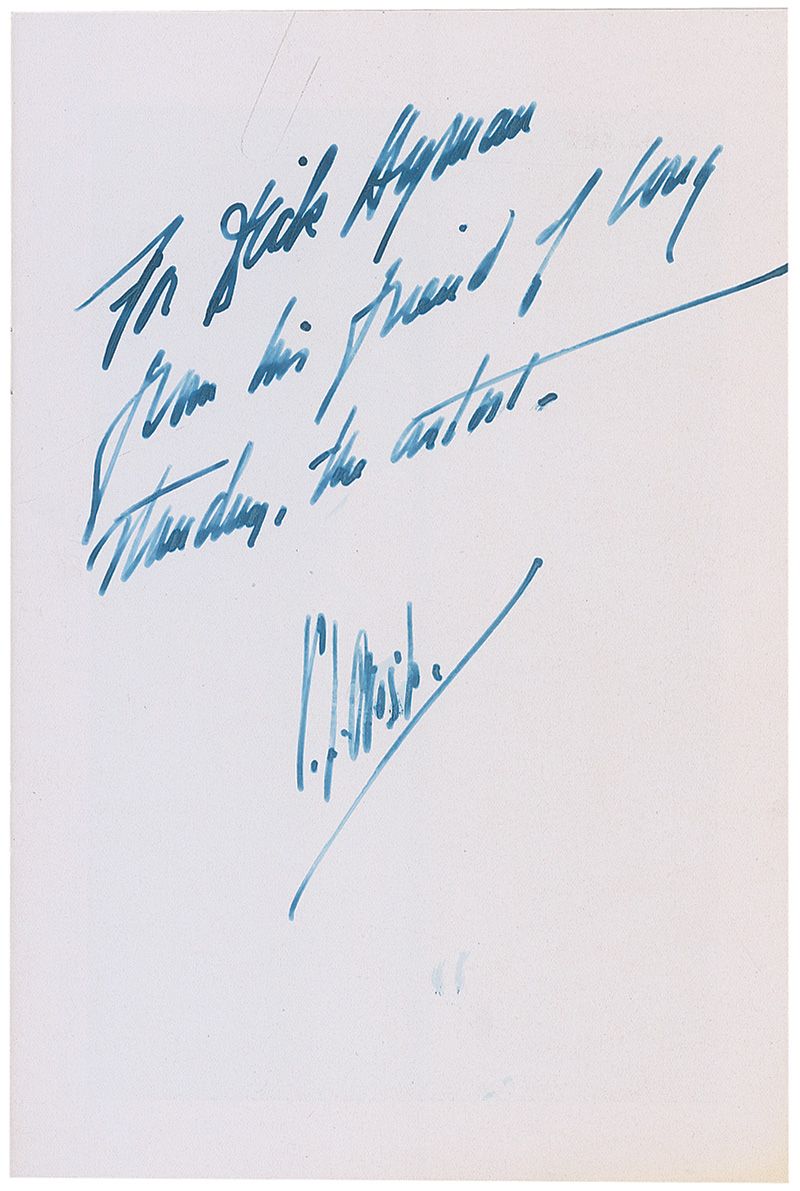 For Dick Hyman
from his friend of long
standing, the artist.